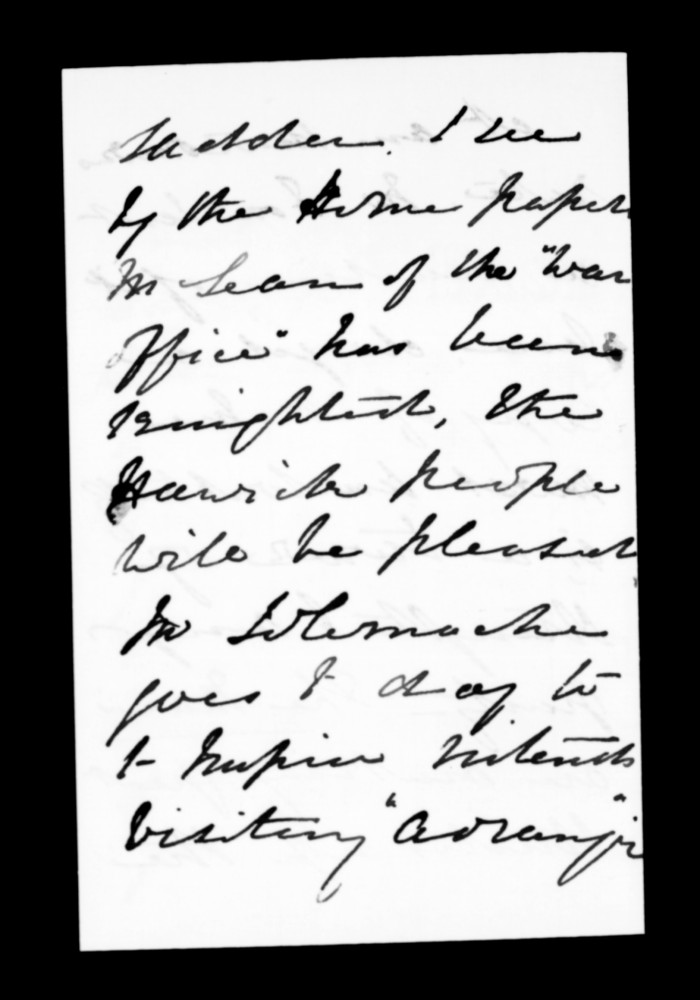 sudden. I see
by the Home papers
Mr Lean of the "War
office" has been
Knighted, the
Hawick people
will be pleased
Mr Tolemache
goes to day to
to Napier intends
visiting "Aorangi"